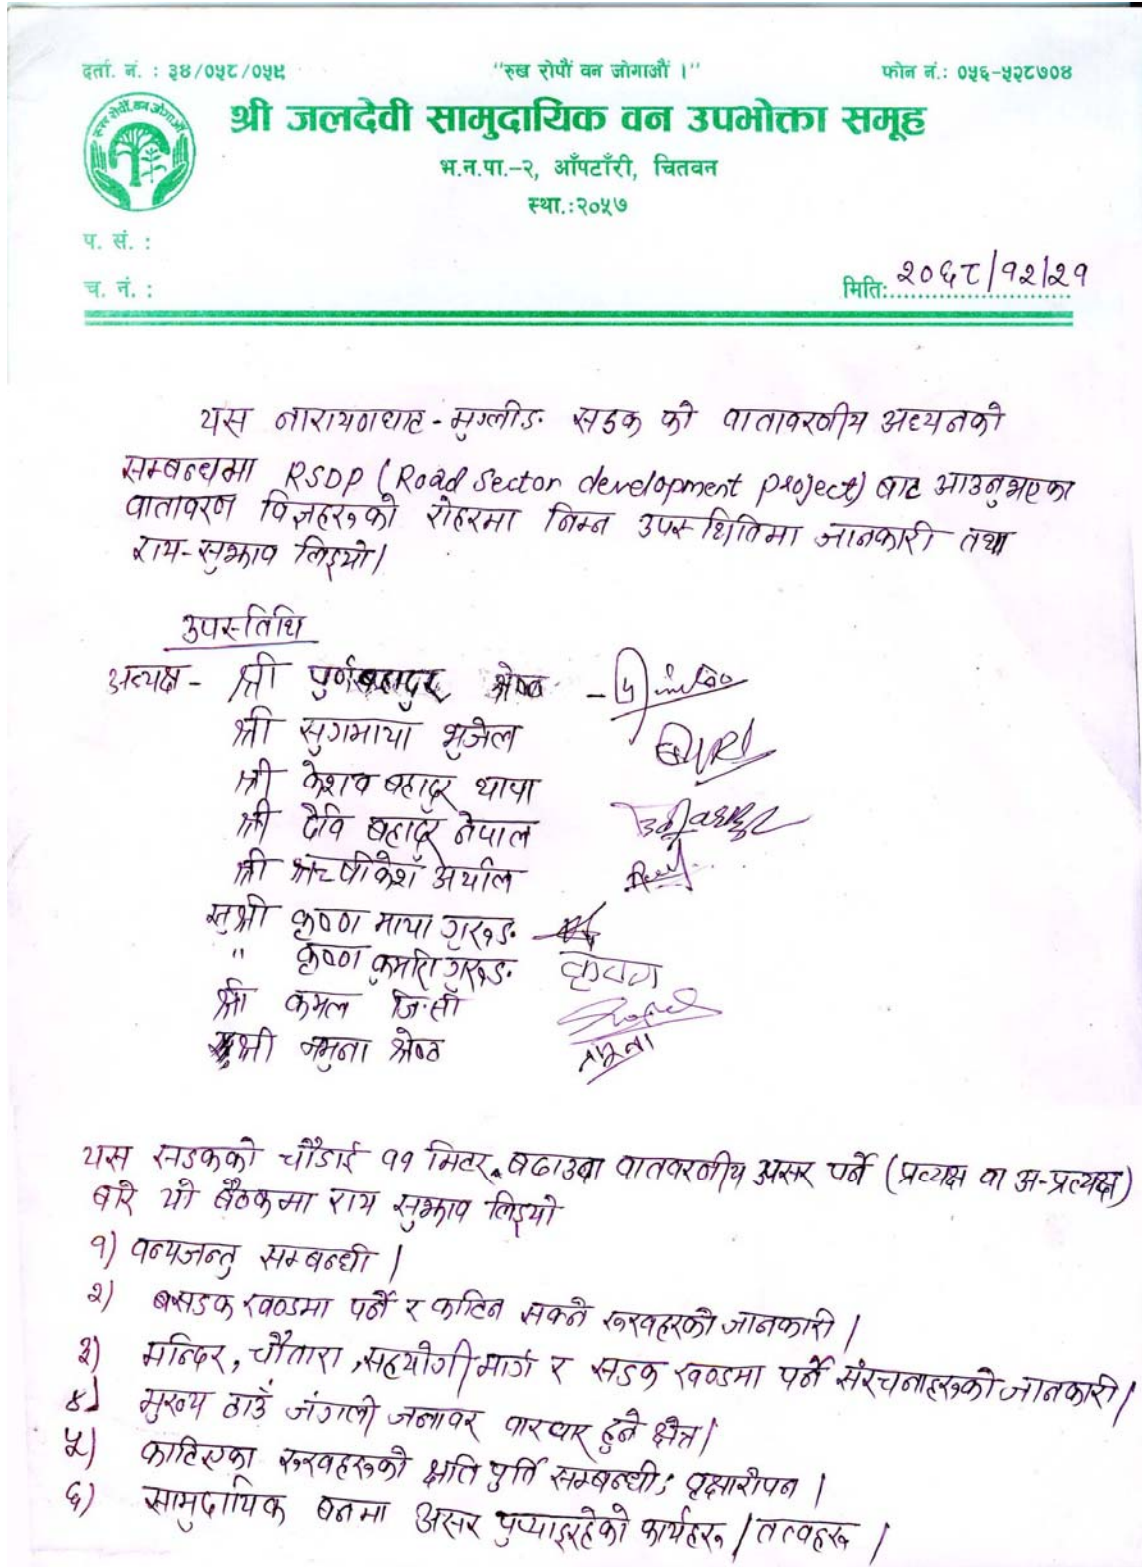 दर्ता. नं. : ३४/०५८/०५९
"रुख रोपौं वन जोगाऔं ।"
फोन नं.: ०५६-५२८७०४
श्री जलदेवी सामुदायिक वन उपभोक्ता समूह
भ.न.पा.-२, आँपटाँरी, चितवन
स्था.:२०५७
प. सं. :
च. नं. :
मिति: २०६८/१२/२१
यस नारायणघाट - मुग्लीङ सडक को वातावरणीय अध्यनको
सम्बन्धमा RSDP (Road Sector development project) बाट आउनुभएका
वातावरण विज्ञहरुको रोहरमा निम्न उपस्थितिमा जानकारी तथा
राय-सुझाव लिइयो।
उपस्तिथि
अध्यक्ष - श्री पुर्णबहादुर श्रेष्ठ -
श्री सुगमाया भुजेल
श्री केशव बहादुर थापा
श्री देवि बहादुर नेपाल
श्री ऋषीकेश अर्याल
सुश्री कृष्ण माया गुरुङ
" कृष्ण कुमारी गुरुङ कृष्ण
श्री कमल जि.सी
सुश्री जमुना श्रेष्ठ जमुना
यस सडकको चौडाई ११ मिटर बढाउदा वातवरणीय असर पर्ने (प्रत्यक्ष वा अ-प्रत्यक्ष)
बारे यो बैठकमा राय सुझाव लिइयो
१) वन्यजन्तु सम्बन्धी ।
२) सडक खण्डमा पर्ने र काटिन सक्ने रुखहरुको जानकारी ।
३) मन्दिर, चौतारा, सहयोगी मार्ग र सडक खण्डमा पर्ने संरचनाहरुको जानकारी ।
४) मुख्य ठाउँ जंगली जनावर वारपार हुने क्षेत्र ।
५) काटिएका रुखहरुको क्षति पुर्ति सम्बन्धी ; वृक्षारोपन ।
६) सामुदायिक बनमा असर पुर्‍याइरहेको कार्यहरु / तत्वहरु ।